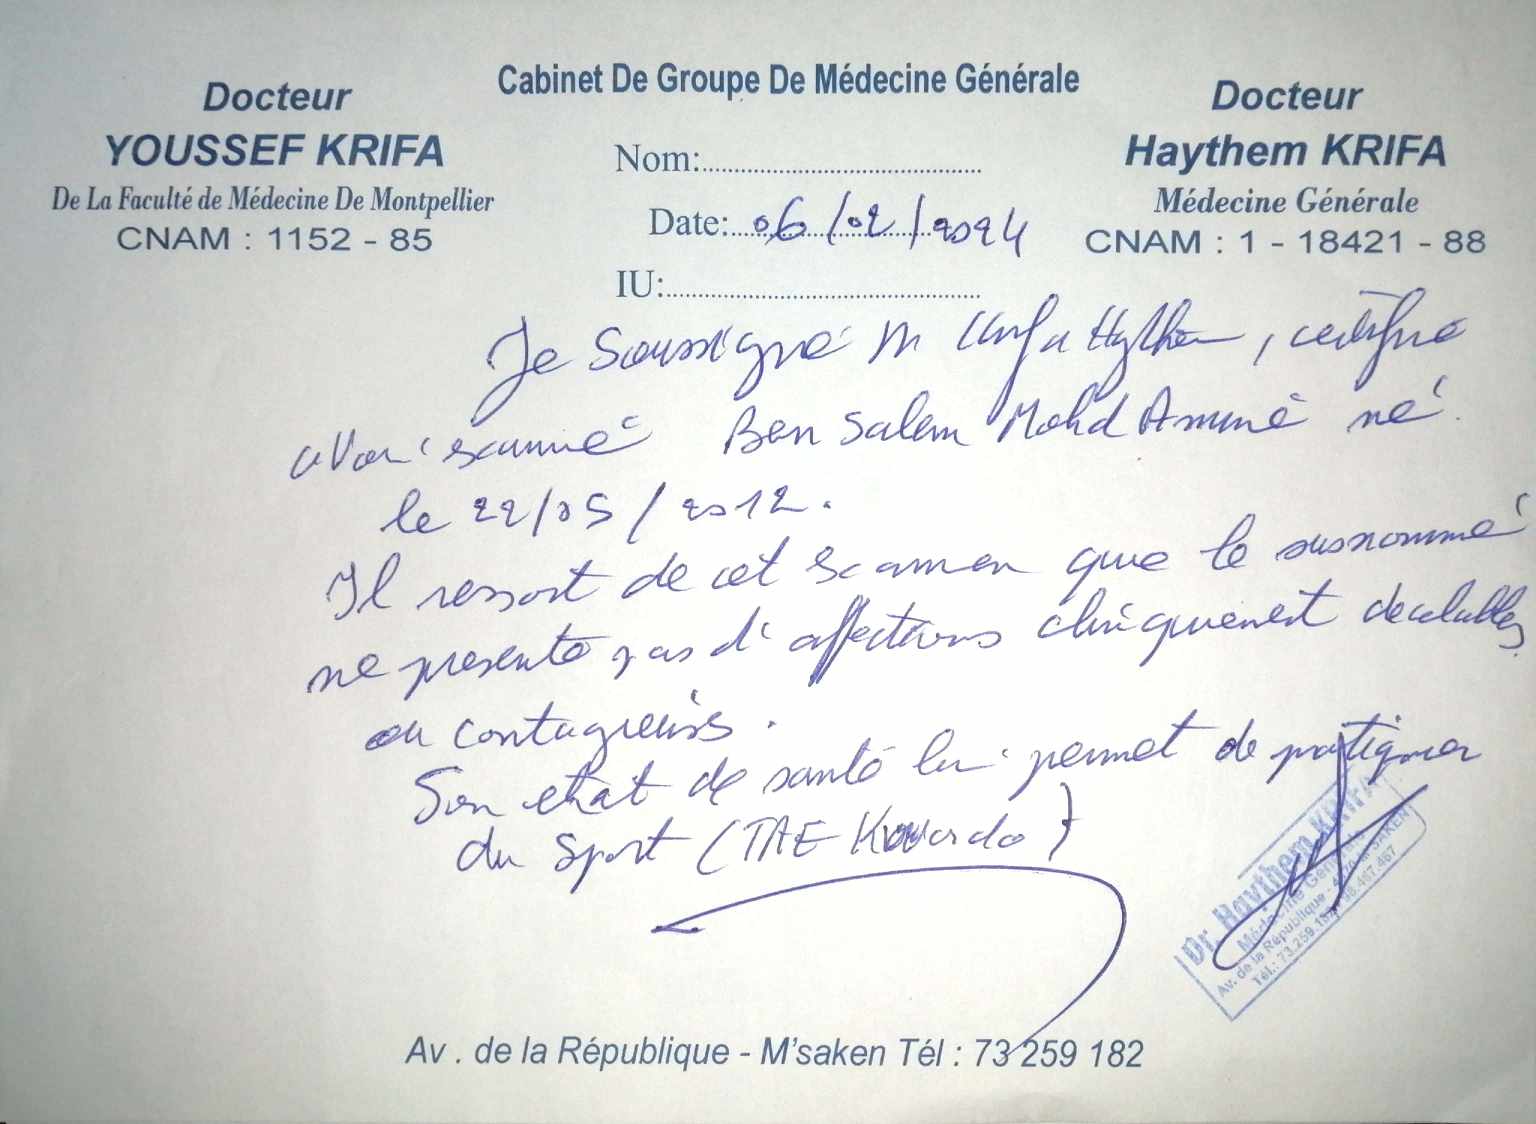 Cabinet De Groupe De Médecine Générale
Docteur
YOUSSEF KRIFA
De La Faculté de Médecine De Montpellier
CNAM : 1152 - 85
Nom:
Date: 06/02/2024
IU:
Docteur
Haythem KRIFA
Médecine Générale
CNAM : 1 - 18421 - 88
Je Soussigné Krifa Haythem, certifie
avoir examiné Ben Salem Mohd Amine né
le 22/05/2012.
Il ressort de cet examen que le susnommé
ne présente pas d'affections cliniquement décelables
ou contagieuses.
Son etat de santé lui permet de pratiquer
du Sport (TAE Kwondo)
Dr. Haythem KRIFA
Médecine Générale
Av. de la République - M'SAKEN
Tél.: 73.259.182 98.467.467
Av . de la République - M'saken Tél : 73 259 182